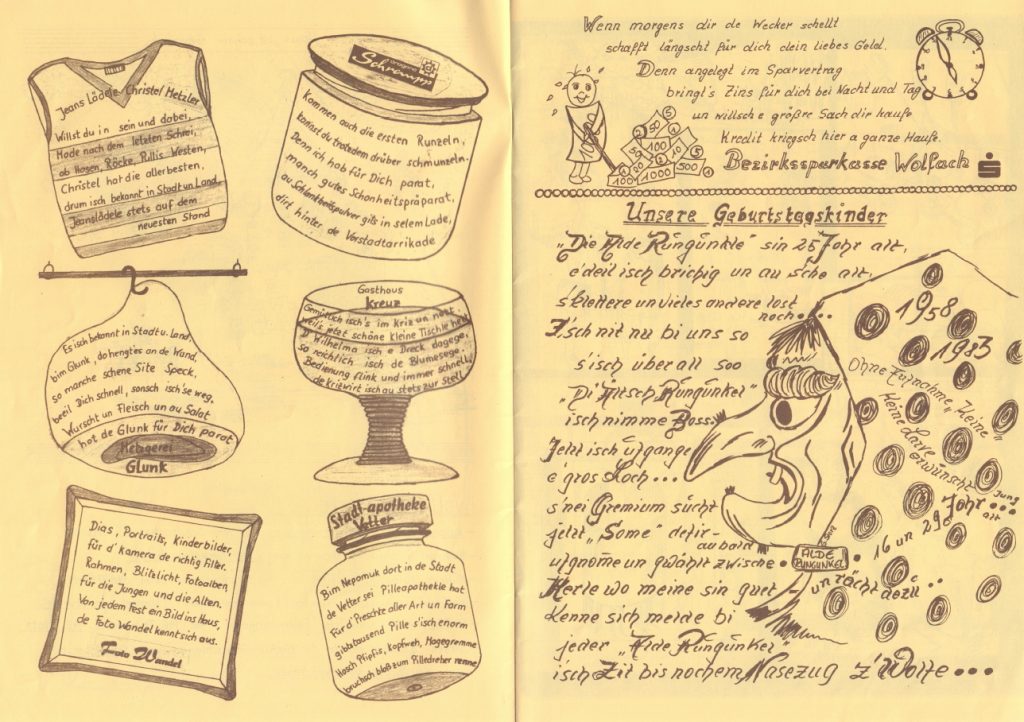 Jeans Lädele Christel Metzler
Willst du in sein und dabei,
Mode nach dem letzten Schrei,
ob Hosen, Röcke, Pullis, Westen,
Christel hat die allerbesten,
drum isch bekannt in Stadt un Land
Jeanslädele stets auf dem
neuesten Stand
drogerie
Schrempp
Kommen auch die ersten Runzeln,
kannst du trotzdem drüber schmunzeln.
Denn ich hab für Dich parat,
manch gutes Schönheitspräparat,
au Schlankheitspulver gits in selem Lade,
dirt hinter de Vorstadtarrikade
Es isch bekannt in Stadt u. Land,
bim Glunk, do hengt'es an de Wand,
so manche schene Site Speck,
beeil Dich schnell, sonsch isch'se weg.
Wurscht un Fleisch un au Salat
hat de Glunk für Dich parat
Metzgerei
Glunk
Gasthaus
Kreuz
Gemütlich isch's im Kriz un nett,
weil's jetzt schöne kleine Tischle hett
D' Wilhelma isch e Dreck dagege,
so reichlich isch de Blumesege.
Bedienung flink und immer schnell,
de Krizwirt isch au stets zur Stell
Dias, Portraits, Kinderbilder,
für d' Kamera de richtig Filter.
Rahmen, Blitzlicht, Fotoalben,
für die Jungen und die Alten.
Von jedem Fest ein Bild ins Haus,
de Foto Wandel kennt sich aus.
Foto Wandel
Stadt-apotheke
Vetter
Bim Nepomuk dort in de Stadt
de Vetter sei Pilleapothekle hat
Für d' Preschte aller Art un Form
gibts tausend Pille s'isch enorm
Hosch Pfipfis, Kopfweh, Magegremme
bruchsch bloß zum Pilledreher renne
Wenn morgens dir de Wecker schellt
schafft längscht für dich dein liebes Geld.
Denn angelegt im Sparvertrag
bringt's Zins für dich bei Nacht und Tag
un willsch e größre Sach dir kaufe
Kredit kriegsch hier a ganze Haufe.
Bezirkssparkasse Wolfach
50
5
100
10
50
100
1000
500
Unsere Geburtstagskinder
"Die Alde Rungunkle" sin 25 Johr alt,
e'deil isch brichig un au scho alt,
s'blettere un vieles andere lost
noch....
S'isch nit nu bi uns so
s'isch überall soo
"Di Hitsch Rungunkel"
isch nimme Boss.
Jetzt isch ufgange
e' gros Loch...
s'nei Gremium sucht
jetzt "Some" defir-
au bald
ufgnome un gwählt zwische.
Kerle wo meine sin guet -
Kenne sich melde bi
jeder "Alde Rungunkel"
isch Zit bis nochem Nasezug z'Wolfe...
1958
1983
Ohne Teilnahme "Keine"
Keine Larve erwünscht
Jung
Johr...
alt
16 un 29
un rächt dezu...
ALDE
RUNGUNKEL